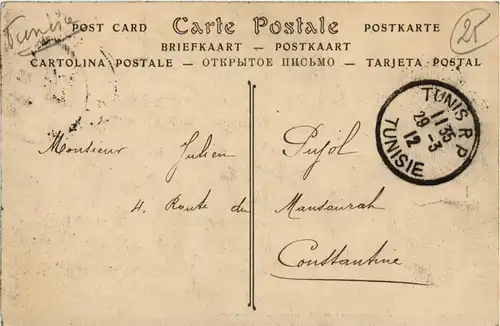 Tunisie
POST CARD Carte Postale POSTKARTE
25
BRIEFKAART — POSTKAART
CARTOLINA POSTALE — ОТКРЫТОЕ ПИСЬМО — TARJETA POSTAL
TUNIS R P
11 35
29 - 3
12
TUNISIE
Monsieur Julien Pujol
4. Route du Mansourah
Constantine